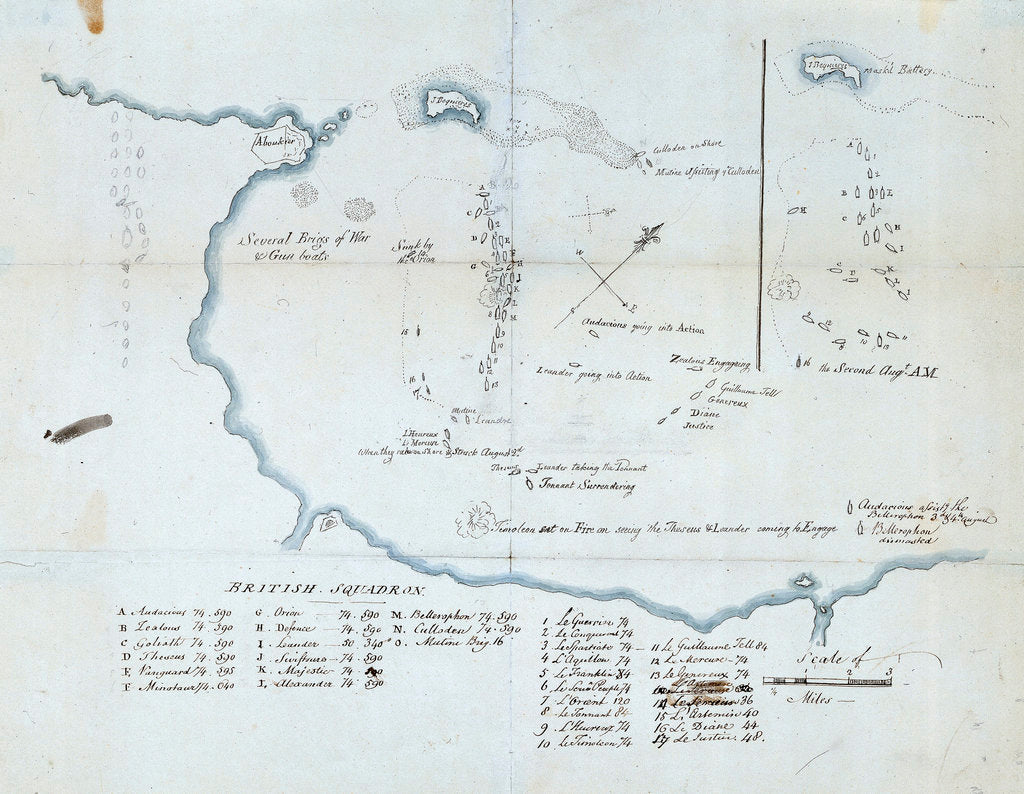 I Bequieres
Aboukeer
Culloden on Shore
Mutine assisting ye Culloden
Several Brigs of War
& Gun boats
Sunk by
the Orion
N
W
E
S
Audacious going into Action
Leander going into Action
Zealous Engageing
Guillaume Tell
Genereux
Diane
Justice
Mutine
Leandre
L'Heureux
Le Mercure
When they ran on Shore & Struck August 2d
Theseus
Leander taking the Tonnant
Tonnant Surrendering
Timoleon set on Fire on seeing the Theseus & Leander coming to Engage
Audacious assistg the
Bellerophon 3d & 4th August
Bellerophon
dismasted
I Bequieres
mask'd Battery
the Second Augt. AM
BRITISH SQUADRON
A Audacious 74 . 590
B Zealous 74 590
C Goliath 74 590
D Theseus 74 590
E Vanguard 74 . 595
F Minotaur 74 . 640
G Orion 74 . 590
H Defence 74 . 590
I Leander 50 340
J Swiftsure 74 . 590
K Majestic 74 . 590
L Alexander 74 . 590
M. Bellerophon 74 . 590
N. Culloden 74 . 590
O. Mutine Brig 16
1 Le Guerrier 74
2 Le Conquerant 74
3 Le Spartiate 74
4 L'Aquilon 74
5 Le Franklin 84
6 Le Souvn Peuple 74
7 L'Orient 120
8 Le Tonnant 84
9 L'Heureux 74
10 Le Timoleon 74
11 Le Guillaume Tell 84
12 Le Mercure 74
13 Le Genereux 74
14 Le Serieuse 36
15 L'Artemise 40
16 Le Diane 44
17 Le Justice 48.
Scale of
¼ 2 3
Miles